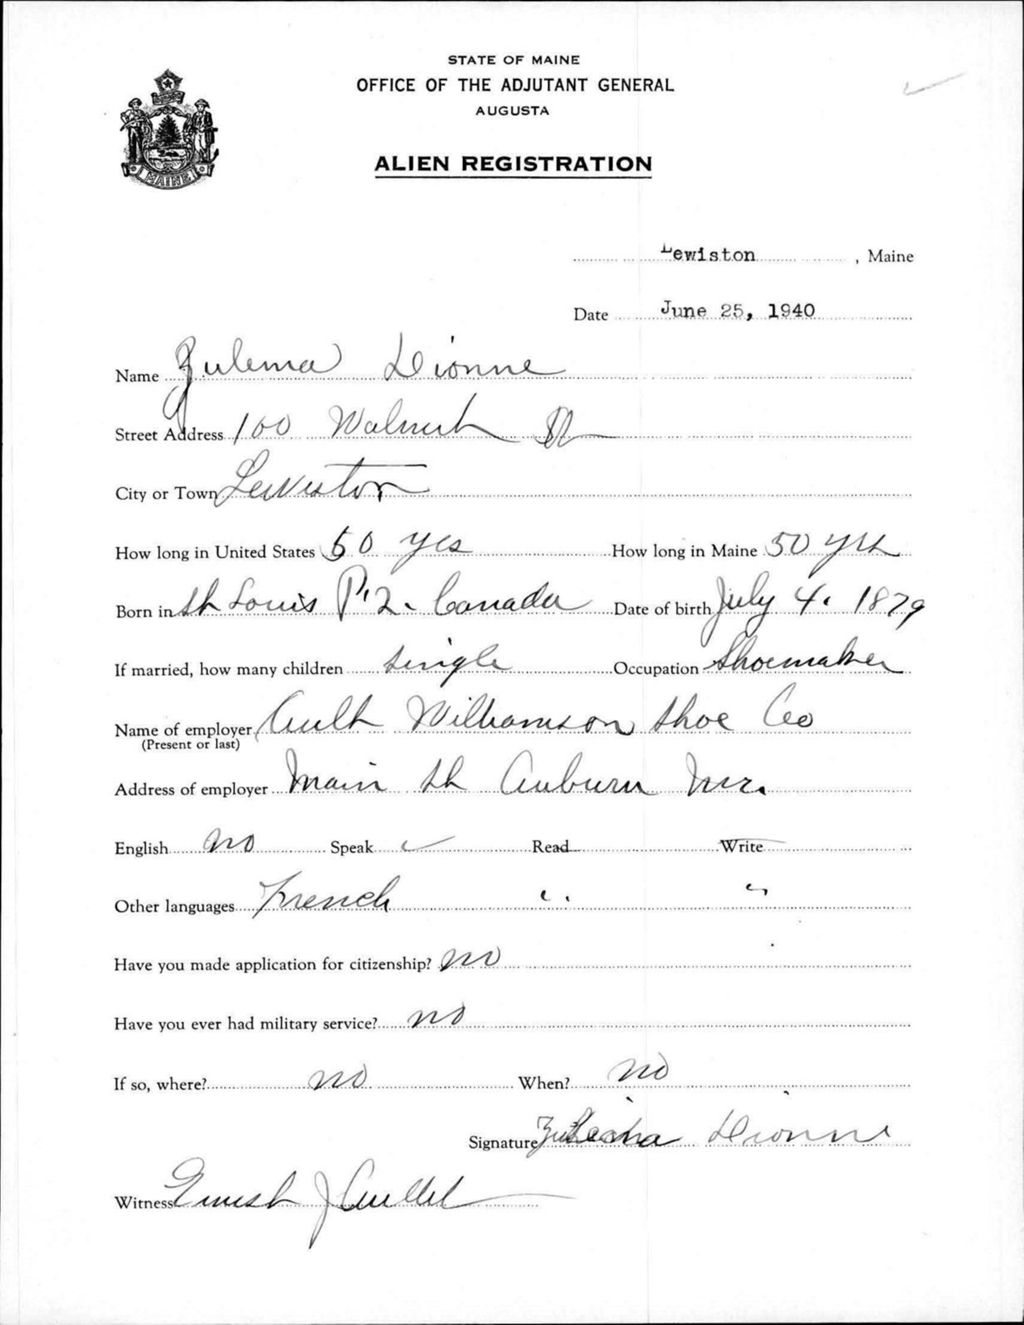 STATE OF MAINE
OFFICE OF THE ADJUTANT GENERAL
AUGUSTA
ALIEN REGISTRATION
MAINE
Lewiston, Maine
Date June 25, 1940
Name Zulema Dionne
Street Address 100 Walnut St
City or Town Lewiston
How long in United States 50 yrs How long in Maine 50 yrs
Born in St Louis P.2. Canada Date of birth July 4. 1879
If married, how many children single Occupation Shoemaker
Name of employer Ault Williamson Shoe Co
(Present or last)
Address of employer Main St Auburn Me.
English no Speak ✓ Read Write
Other languages French " "
Have you made application for citizenship? no
Have you ever had military service? no
If so, where? no When? no
Signature Dionne
Witness Ernest J